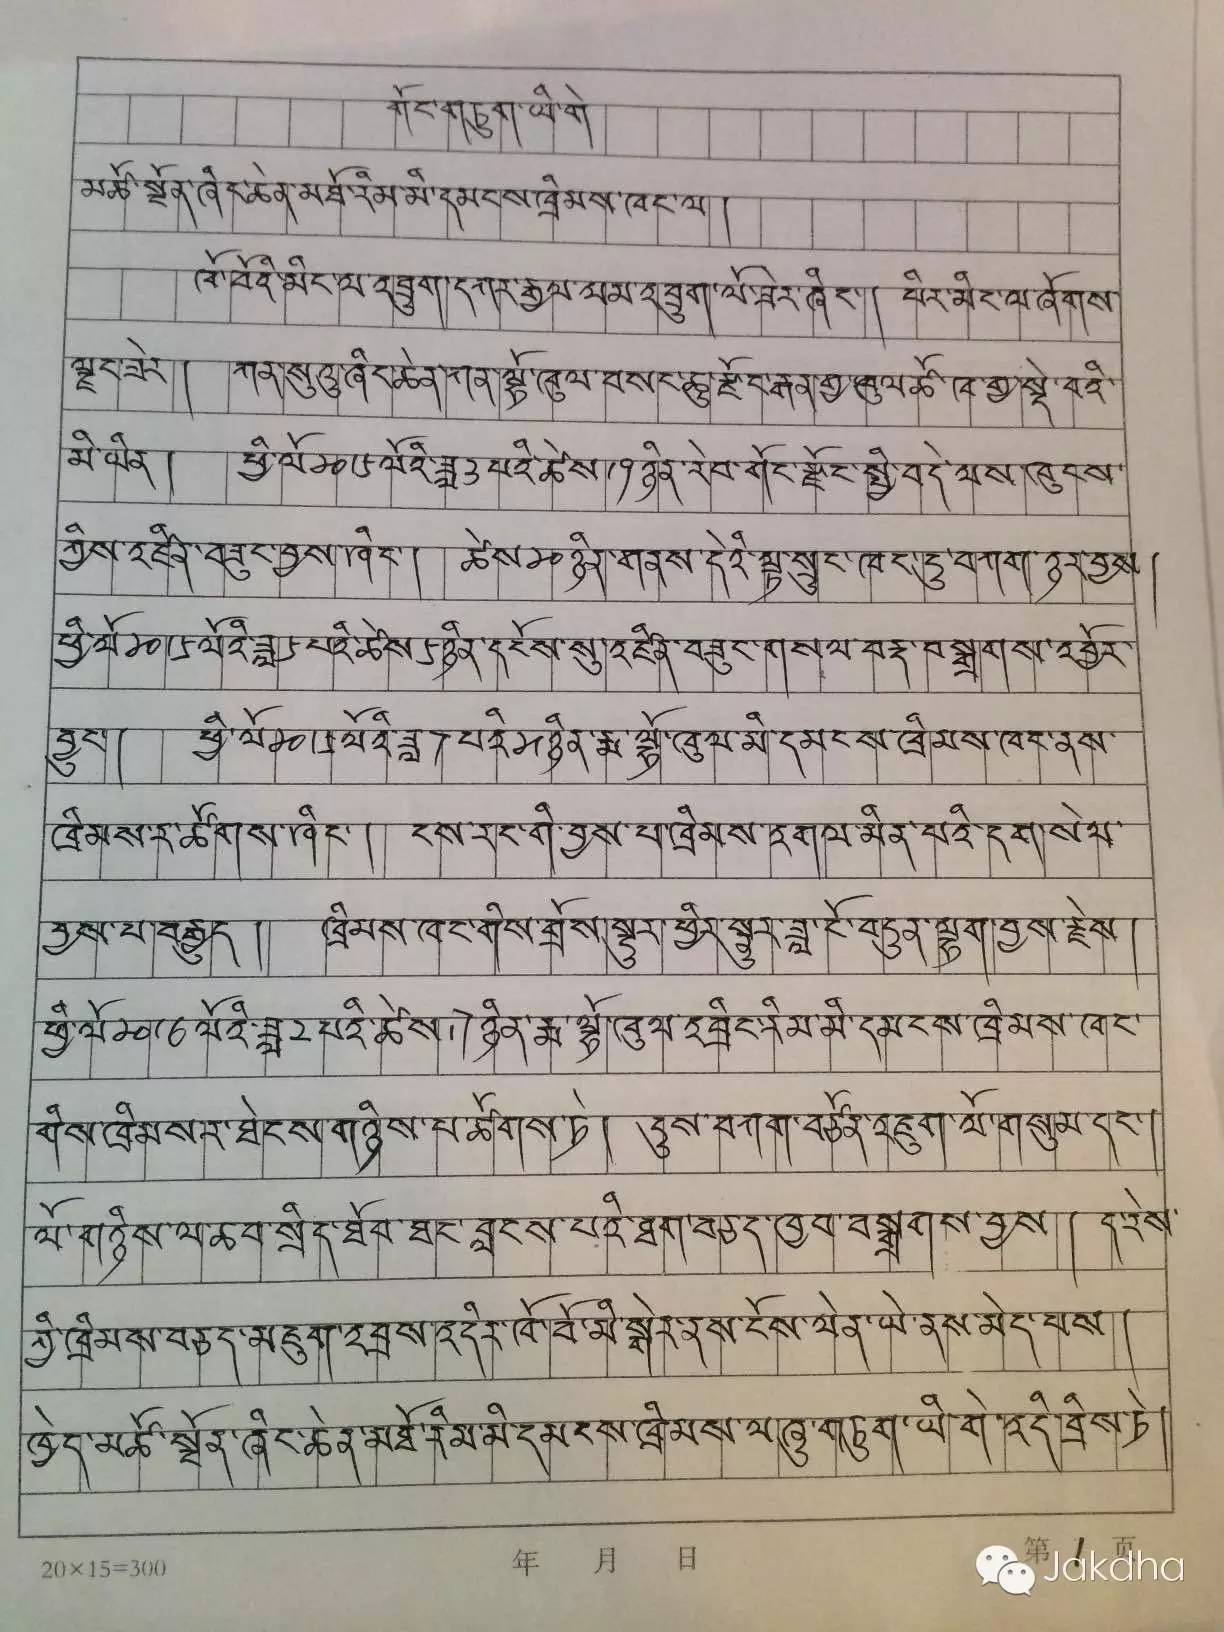 གོང་གཏུག་ཡི་གེ
མཚོ་སྔོན་ཞིང་ཆེན་མཐོ་རིམ་མི་དམངས་ཁྲིམས་ཁང་ལ།
ཁོ་བོའི་མིང་ལ་འབྲུག་དཀར་རྒྱལ་ཡམ་འབྲུག་ལོ་ཟེར་ཞིང་། ཕར་མིང་ལ་ཞོགས་
ལྟུང་ཟེར། ཀན་སུའུ་ཞིང་ཆེན་ཀན་ལྷོ་ཁུལ་བསང་ཆུ་རྫོང་རྒན་གྱ་ཁུལ་ཚོ་བ་
མི་ཡིན། ཕྱི་ལོ༢༠༡༥ལོའི་ཟླ3པའི་ཚེས་19ཉིན་རེབ་གོང་རྫོང་སྤྱི་བདེ་ལས་ཁུངས་
ཀྱིས་འཛིན་བཟུང་བྱས་ཤིང་། ཚེས༢༠ཉིན་གནས་དེའི་ལྟ་སྲུང་ཁང་དུ་བཀག་ཉར་བྱས།
ཕྱི་ལོ༢༠༡༥ལོའི་ཟླ༥པའི་ཚེས༥ཉིན་དངོས་སུ་འཛིན་བཟུང་གསལ་བརྡ་བསྒྲགས་འབྱོར་
བྱུང་། ཕྱི་ལོ༢༠༡༥ལོའི་ཟླ7པའི༢༥ཉིན་རྨ་ལྷོ་ཁུལ་མི་དམངས་ཁྲིམས་ཁང་ནས་
ཁྲིམས་ར་ཚོགས་ཤིང་། ངས་རང་གི་བྱས་པ་ཁྲིམས་འགལ་མིན་པའི་དག་སེལ་
བྱས་པ་བརྒྱུད། ཁྲིམས་ཁང་གིས་གྲོས་སྡུར་ཕྱིར་སྡུར་ཟླ་ངོ་བདུན་ལྷག་བྱས་རྗེས།
ཕྱི་ལོ༢༠༡6ལོའི་ཟླ2པའི་ཚེས་17ཉིན་རྨ་ལྷོ་ཁུལ་འབྲིང་རིམ་མི་དམངས་ཁྲིམས་ཁང་
གིས་ཁྲིམས་ར་ཐེངས་གཉིས་པ་ཚོགས་ཏེ། དུས་བཀག་བཙོན་འཇུག་ལོ་གསུམ་དང་།
ལོ་གཉིས་ལ་ཆབ་སྲིད་ཐོབ་ཐང་བླངས་པའི་ཐག་བཅད་ཁྱབ་བསྒྲགས་བྱས། ད་རེས་
ཀྱི་ཁྲིམས་བཅད་མཇུག་འབྲས་འདིར་ཁོ་བོ་མི་སྒེར་ངས་ངོས་ལེན་ཡེ་ནས་མེད་པས།
ཁྱེད་མཚོ་སྔོན་ཞིང་ཆེན་མཐོ་རིམ་མི་དམངས་ཁྲིམས་ལ་ཞུ་གཏུག་ཡི་གེ་འདི་བྲིས་ཏེ།
20×15=300 年 月 日 第 1 页
Jakdha